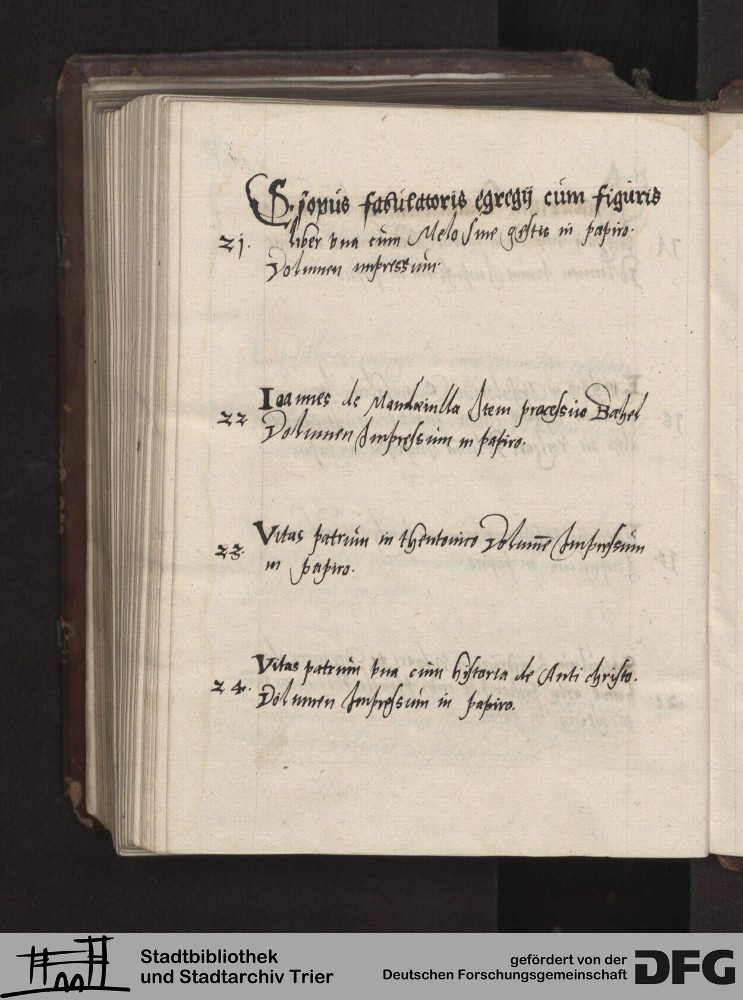 Esopus fabulatoris egregij cum figuris
21. liber vna cum Melosine gestis in papiro.
Volumen impressum.
22 Ioannes de Mandauilla Item processus Bahel
Volumen Impressum in papiro.
23. Vitas patrum in theutonico Volumē Impressum
in papiro.
24. Vitas patrum vna cum historia de Anti christo.
Volumen Impressum in papiro.
Stadtbibliothek
und Stadtarchiv Trier
gefördert von der
Deutschen Forschungsgemeinschaft
DFG